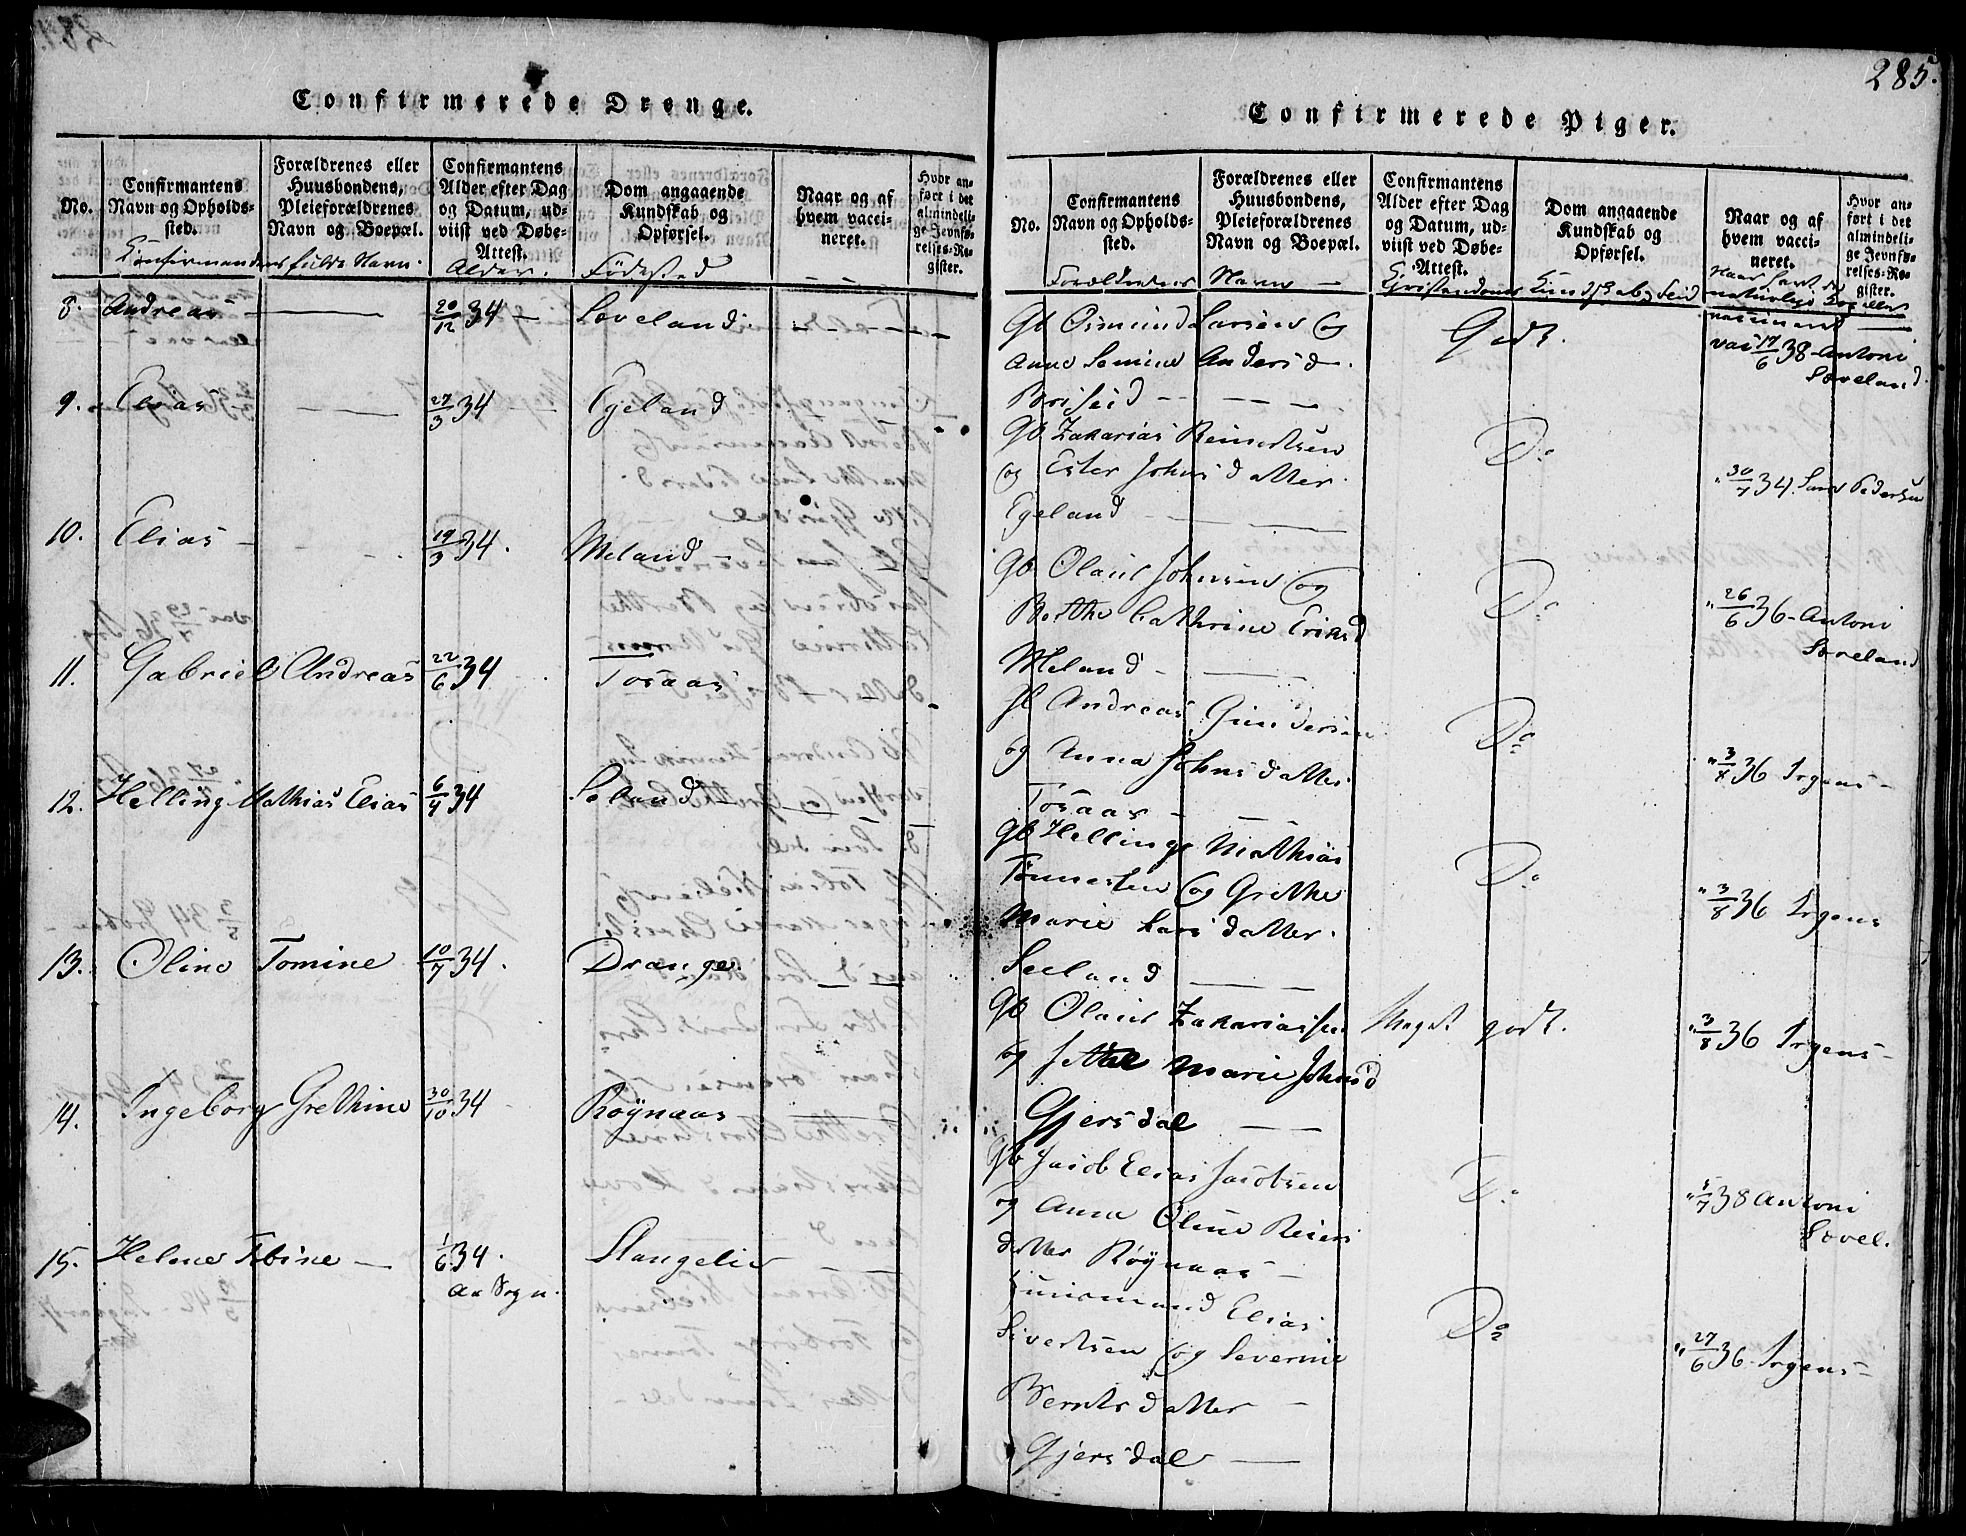 285.
Confirmerede Drenge.
No.
Confirmantens
Navn og Opholds-
sted.
Forældrenes eller
Huusbondens,
Pleieforældrenes
Navn og Boepæl.
Confirmantens
Alder efter Dag
og Datum, ud-
viist ved Døbe-
Attest.
Dom angaaende
Kundskab og
Opførsel.
Naar og af
hvem vacci-
neret.
Hvor an-
ført i det
almindeli-
ge Jevnfø-
relses-Re-
gister.
Confirmandens fulde Navn.
Alder.
Födested
8. Andreas 20/12 34 Loveland
9. Elias 27/3 34 Egeland
10. Elias 19/3 34. Meland
11. Gabriel Andreas 22/6 34 Tosaas
12. Helling Mathias Elias 6/4 34 Seland
13. Oline Tomine 10/7 34. Drange
14. Ingeborg Grethine 30/10 34 Röynaas
15. Helene Tobine 1/6 34. Stangelie
Aa Sogn.
Confirmerede Piger.
No.
Confirmantens
Navn og Opholds-
sted.
Forældrenes eller
Huusbondens,
Pleieforældrenes
Navn og Boepæl.
Confirmantens
Alder efter Dag
og Datum, ud-
viist ved Døbe-
Attest.
Dom angaaende
Kundskab og
Opførsel.
Naar og af
hvem vacci-
neret.
Hvor an-
ført i det
almindeli-
ge Jevnfø-
relses-Re-
gister.
Forældrenes Navn
Christendoms Kundskab og Flid
naturlige Kop. eller
vaccineret
Gb Osmund Larsen og
Anne Semine Andersd.
Briseid
Godt.
vac 17/6 38 Antoni
Loveland
Gb Zakarias Reinertsen
og Ester Johnsdatter.
Egeland
Do
" 30/7 34. Lars Pedersen
Gb Olaus Johnsen og
Berthe Cathrine Eriksd
Meland
Do
" 26/6 36 - Antoni
Loveland
Gb Andreas Gundersen
og Anna Johnsdatter
Tosaas
Do
" 3/8 36 Irgens
Gb Hellinge Mathias
Tönnessen og Grethe
Marie Larsdatter.
Seeland
Do
" 3/8 36 Irgens
Gb Olaus Zakariassen
og Marie Johnsd
Gjersdal
Meget godt.
" 3/8 36 Irgens
Gb Jacob Elias Jacobsen
og Anna Oline Reiers
datter Röynaas
Do
" 5/7 38 Antoni
Lovel.
Huusmand Elias
Sivertsen og Severine
Berntsdatter
Gjersdal
Do
" 27/6 36 - Irgens